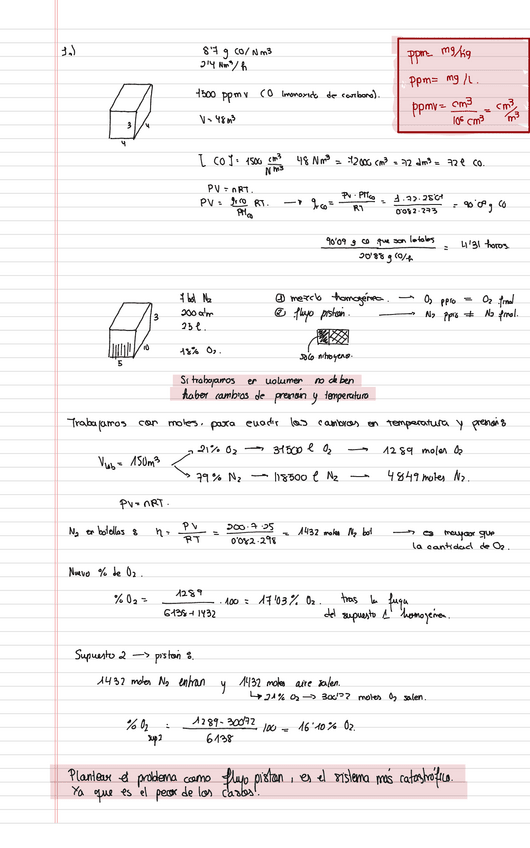 1.)
8'7 g CO/Nm3
2'4 Nm3/h
ppm= mg/kg
ppm= mg/L.
ppmv= cm3/106 cm3 = cm3/m3
1500 ppmv CO (monóxido de carbono).
V= 48m3
3 4
4
[CO]= 1500 cm3/Nm3 48 Nm3 = 72000 cm3 = 72 dm3 = 72 l CO.
PV = nRT.
PV = gr co/PMco RT. → grco = PV·PMco/RT = 1.72.28'01/0'082.273 = 90'09 g CO
90'09 g CO que son letales/20'88 g CO/h = 4'31 horas
7 bol N2
200 atm
25 l.
18% O2.
3
10
5
① mezcla homogénea. → O2 ppio = O2 final
② flujo pistón. → N2 ppio ≠ N2 final.
solo nitrógeno.
Si trabajamos en volumen no deben
haber cambios de presión y temperatura
Trabajamos con moles, para evadir los cambios en temperatura y presión
Vlab = 150m3
21% O2 → 31500 l O2 → 1289 moles O2
79% N2 → 118500 l N2 → 4849 moles N2.
PV=nRT.
N2 en botellas n = PV/RT = 200.7.25/0'082.298 = 1432 moles N2 bot → es mayor que
la cantidad de O2.
Nuevo % de O2.
% O2 = 1289/6138+1432 .100 = 17'03% O2. tras la fuga
del supuesto 1 homogénea.
Supuesto 2 → pistón
1432 moles N2 entran y 1432 moles aire salen.
↳ 21% O2 → 300'72 moles O2 salen.
% O2 sup2 = 1289-300'72/6138 100 = 16'10% O2.
Plantear el problema como flujo pistón, es el sistema más catastrófico.
Ya que es el peor de los casos.